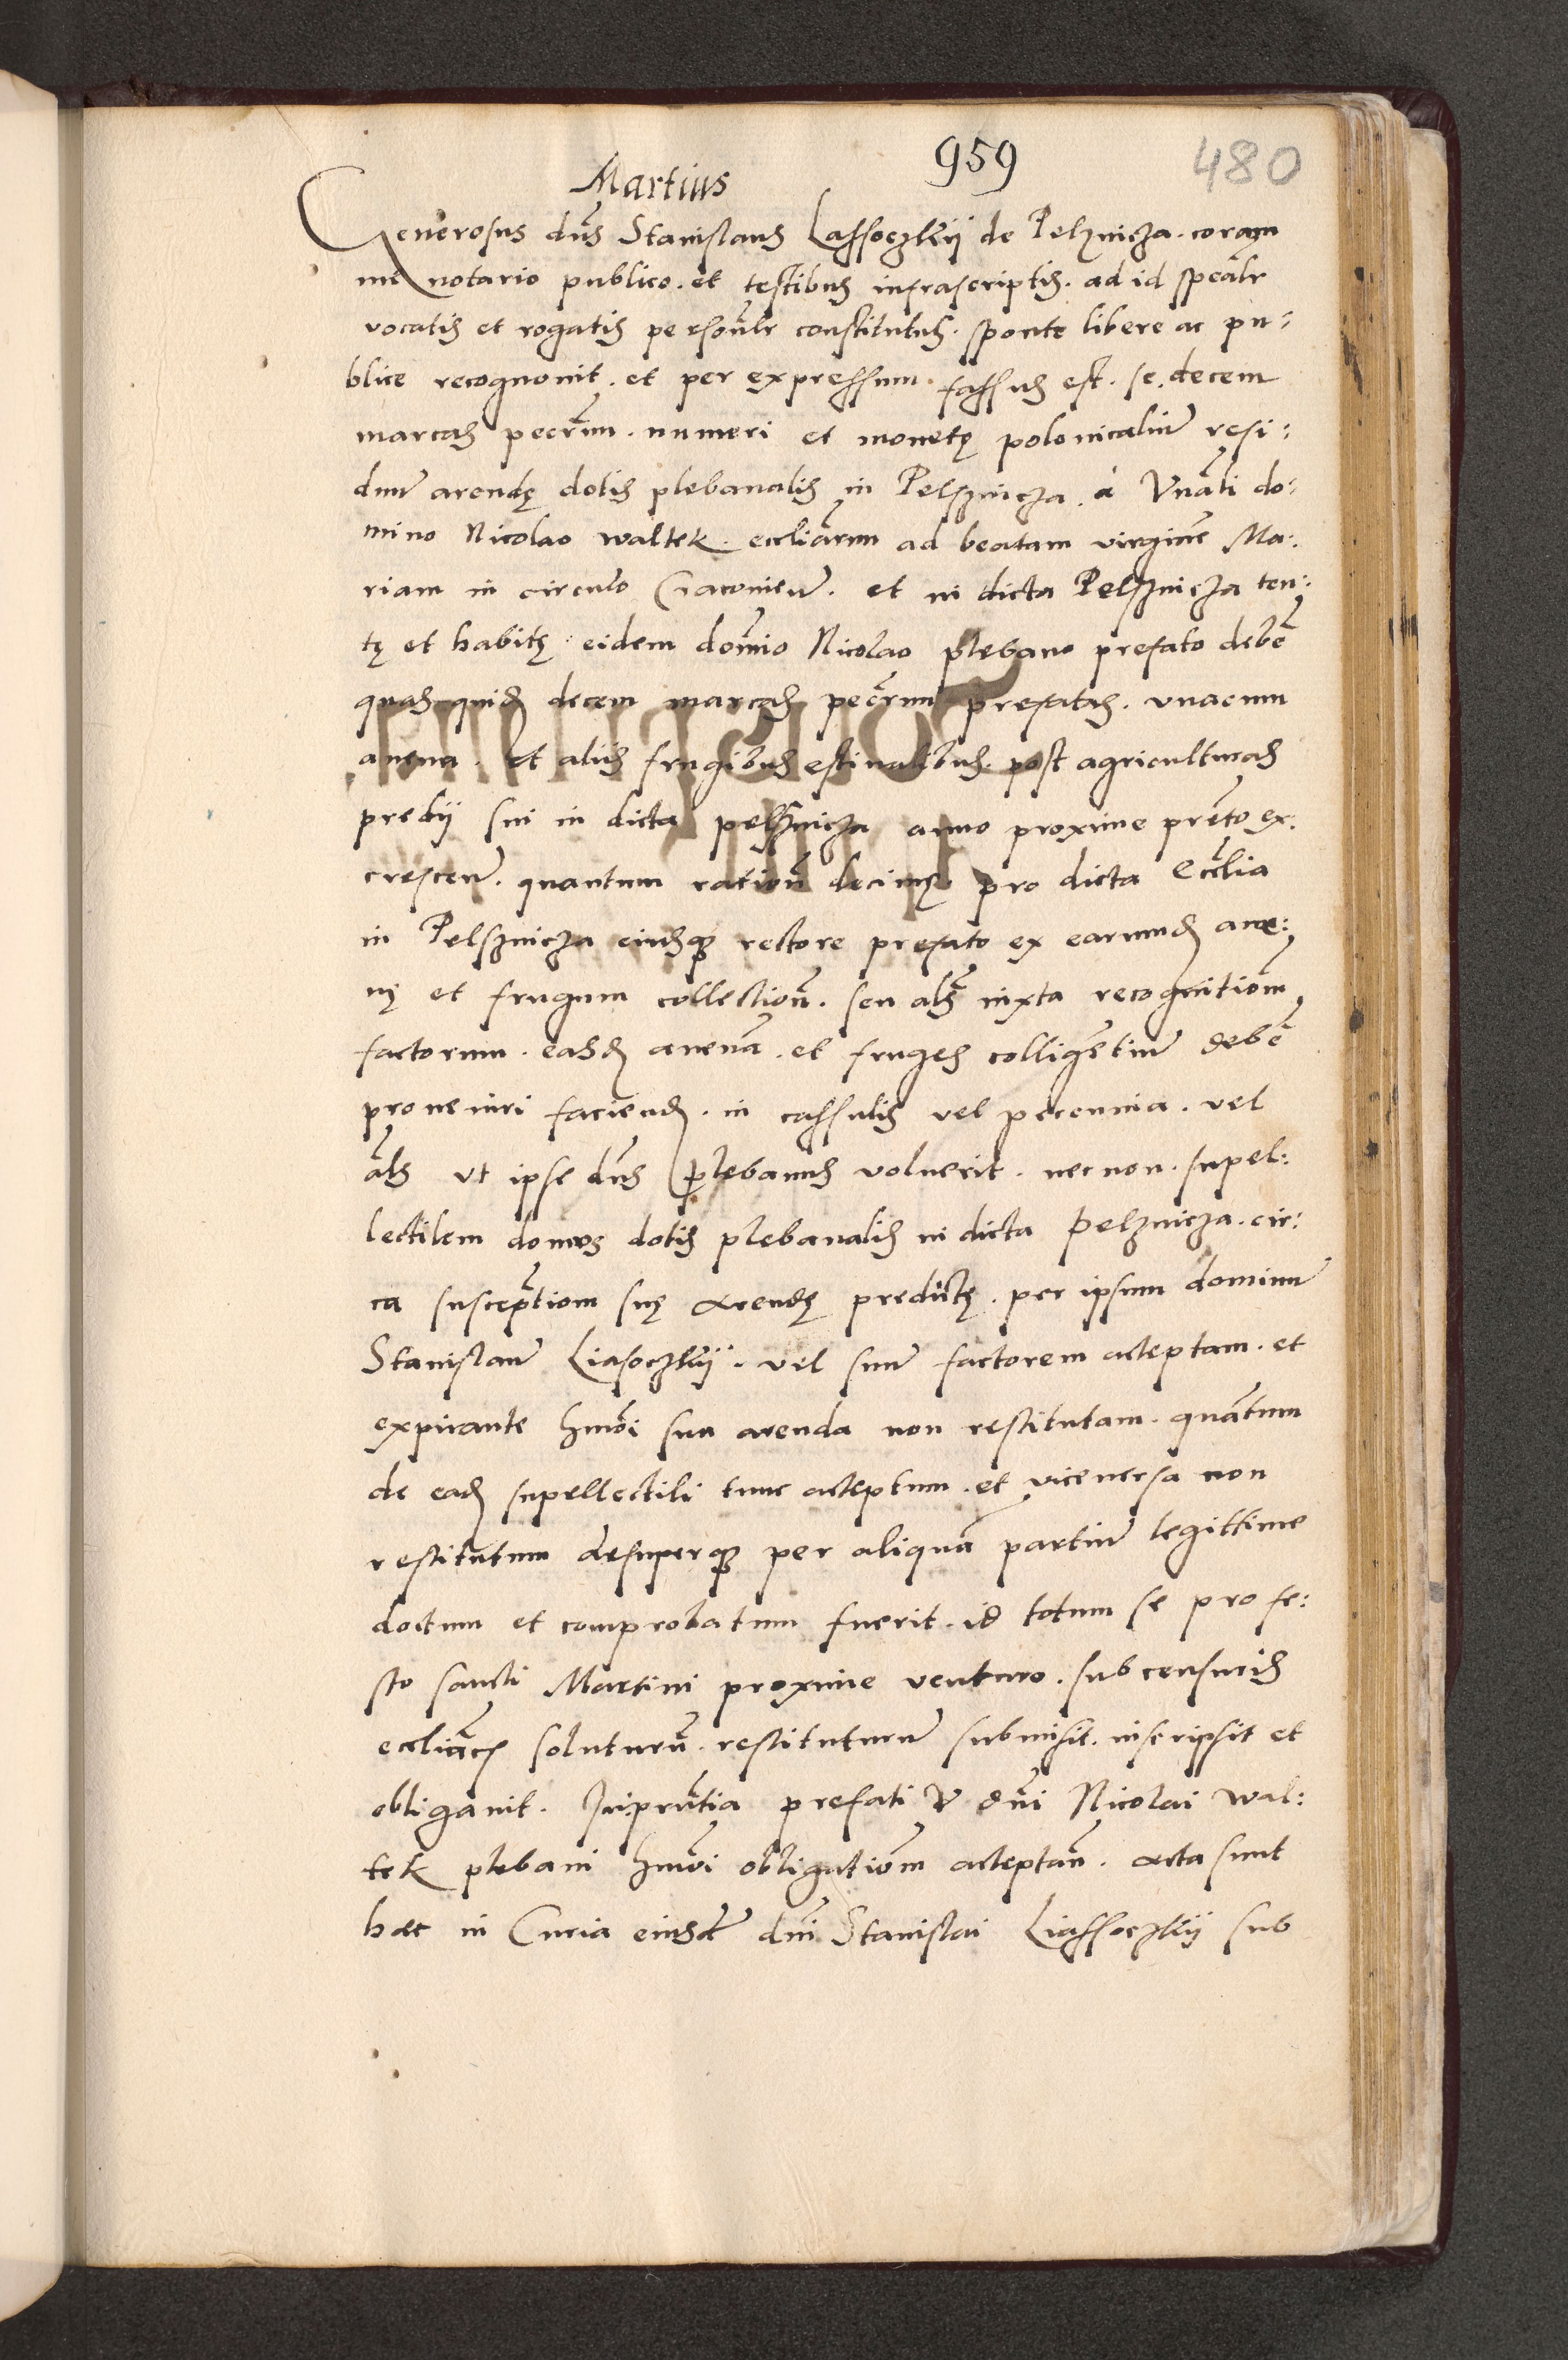 959
480
Martius
Generosus dns Stanislaus Lassoczkii de Pelznicza. coram
me notario publico. et testibus infrascriptis. ad id spealr
vocatis et rogatis personlr constitutus. sponte libere ac pu:
blice recognovit. et per expressum fassus est. se. decem
marcas pecrum. numeri et monetę polonicaliu resi:
duu arendę dotis plebanalis in Pelsznicza. a Vnabli do:
mino Nicolao waltek. eccliarum ad beatam virgine Ma:
riam in circulo Cracovien. et in dicta Pelsznicza ten:
tę et habitę eidem domio Nicolao plebano prefato debe
quas quid decem marcas pecrum prefatas. vnacum
avena. et aliis frugibus estivalibus. post agriculturas
predii sui in dicta pelsznicza anno proxime prento ex:
crescen. quantum ration decimę pro dicta Ecclia
in Pelsznicza eiusq rectore prefato ex earumd ave:
nę et frugum collection. seu als iuxta recognitiom
factorum. easd avena. et fruges colligentiu debe
proveniri faciend. in cassulis vel pecunia. vel
als vt ipse dns plebanus voluerit. necnon. supel:
lectilem domus dotis plebanalis in dicta Pelznicza. cir:
ca susceptiom suę arendę predictę. per ipsum dominu
Stanislau Liasoczkii. vel suu factorem acceptam. et
expirante hmoi sua arenda non restitutam. quantum
de ead supellectili tunc acceptum. et viceversa non
restitutum desuperq per aliqua partiu legittime
doctum et comprobatum fuerit. id totum se pro fe:
sto sancti Martini proxime venturo. sub censuris
eccliacis soluturu. restituturu submisit. inscripsit et
obligavit. Inprntia prefati V dni Nicolai Wal:
tek plebani hmoi obligatiom acceptan. Acta sunt
hec in Curia eiusd dni Stanislai Liassoczkii sub